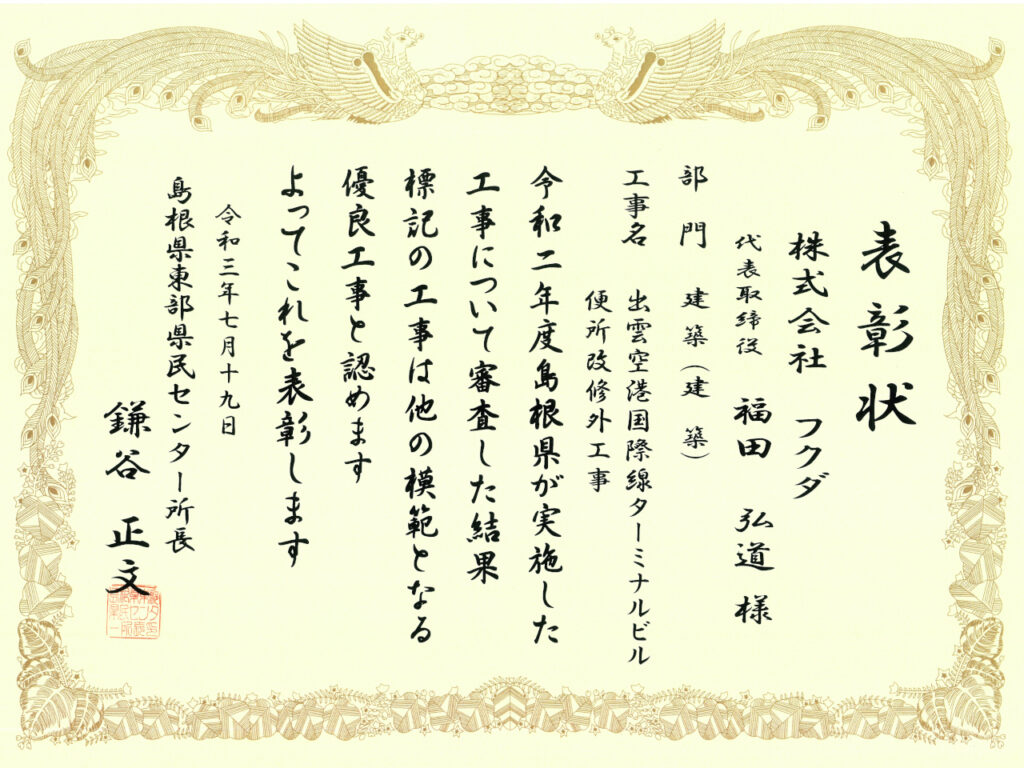 表彰状
株式会社 フクダ
代表取締役 福田 弘道 様
部門 建築(建築)
工事名 出雲空港国際線ターミナルビル
便所改修外工事
令和二年度島根県が実施した
工事について審査した結果
標記の工事は他の模範となる
優良工事と認めます
よってこれを表彰します
令和三年七月十九日
島根県東部県民センター所長
鎌谷 正文